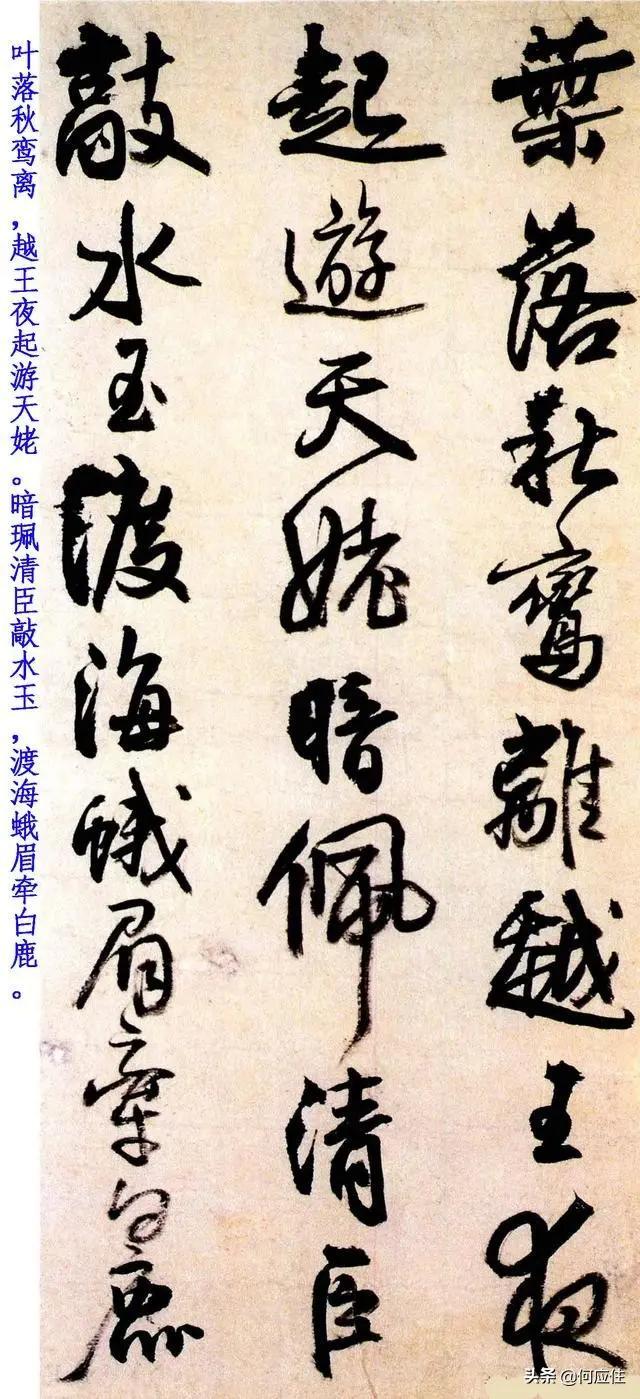 葉落秋鸞離越王夜
起遊天姥暗佩清臣
敲水玉渡海蛾眉牽白鹿
叶落秋鸾离，越王夜起游天姥。暗珮清臣敲水玉，渡海蛾眉牵白鹿。
头条 @何应住